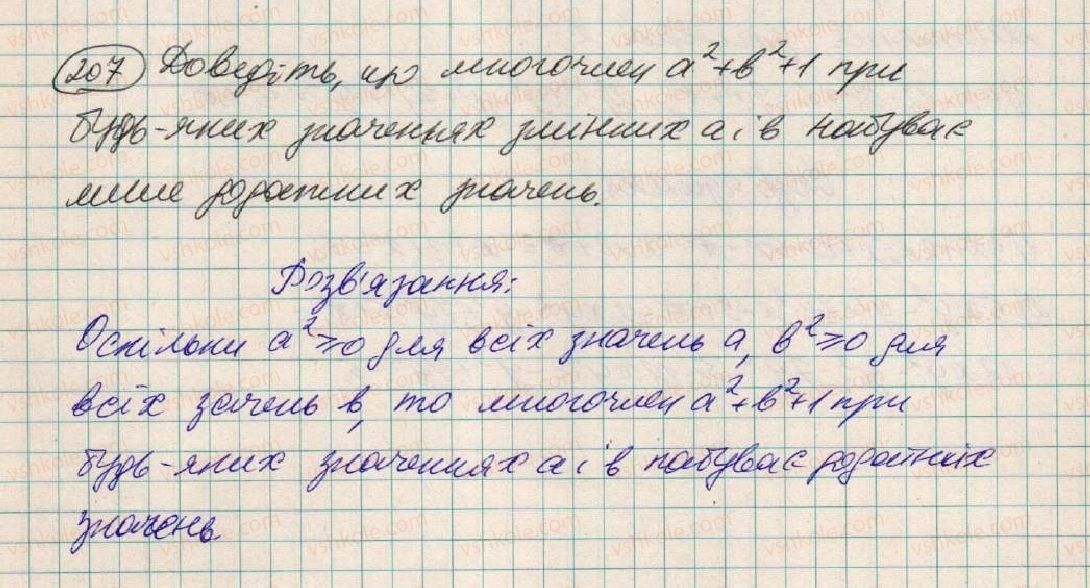 207 Доведіть, що многочлен a²+b²+1 при
будь-яких значеннях змінних a і b набуває
лише додатних значень.
Розв'язання:
Оскільки a²≥0 для всіх значень a, b²≥0 для
всіх зачень b, то многочлен a²+b²+1 при
будь-яких значеннях a і b набуває додатніх
значень.